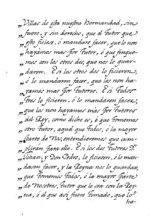 Villas de esta nuestra Hermandad, sin
fuero, y sin derecho, que al Tutor que
esto ficiere, o mandare facer, que le non
hayamos mas por Tutor, e que fingue-
mos con los otros dos, que nos lo guar-
daren. E si los otros dos lo ficieren,
o lo mandaren facer, que los non ha-
yamos mas por Tutores. E si todos
tres lo ficieren, o lo mandaren facer,
que los non hayamos mas por Tutores
del Rey, como dicho es, e que tomemos
otro Tutor, aquel que todos, o la mayor
parte de Nos, entendieremos que cum-
plirán para ello. E si los Tutores D.
Johan, y Don Pedro, lo ficieren, o lo man-
daren facer, y la Reyna nos lo guardare
que tomemos todos, o la mayor parte
de Nos otro Tutor que lo sea con la Rey-
na, e el que así fuere tomado, que lo
ha-